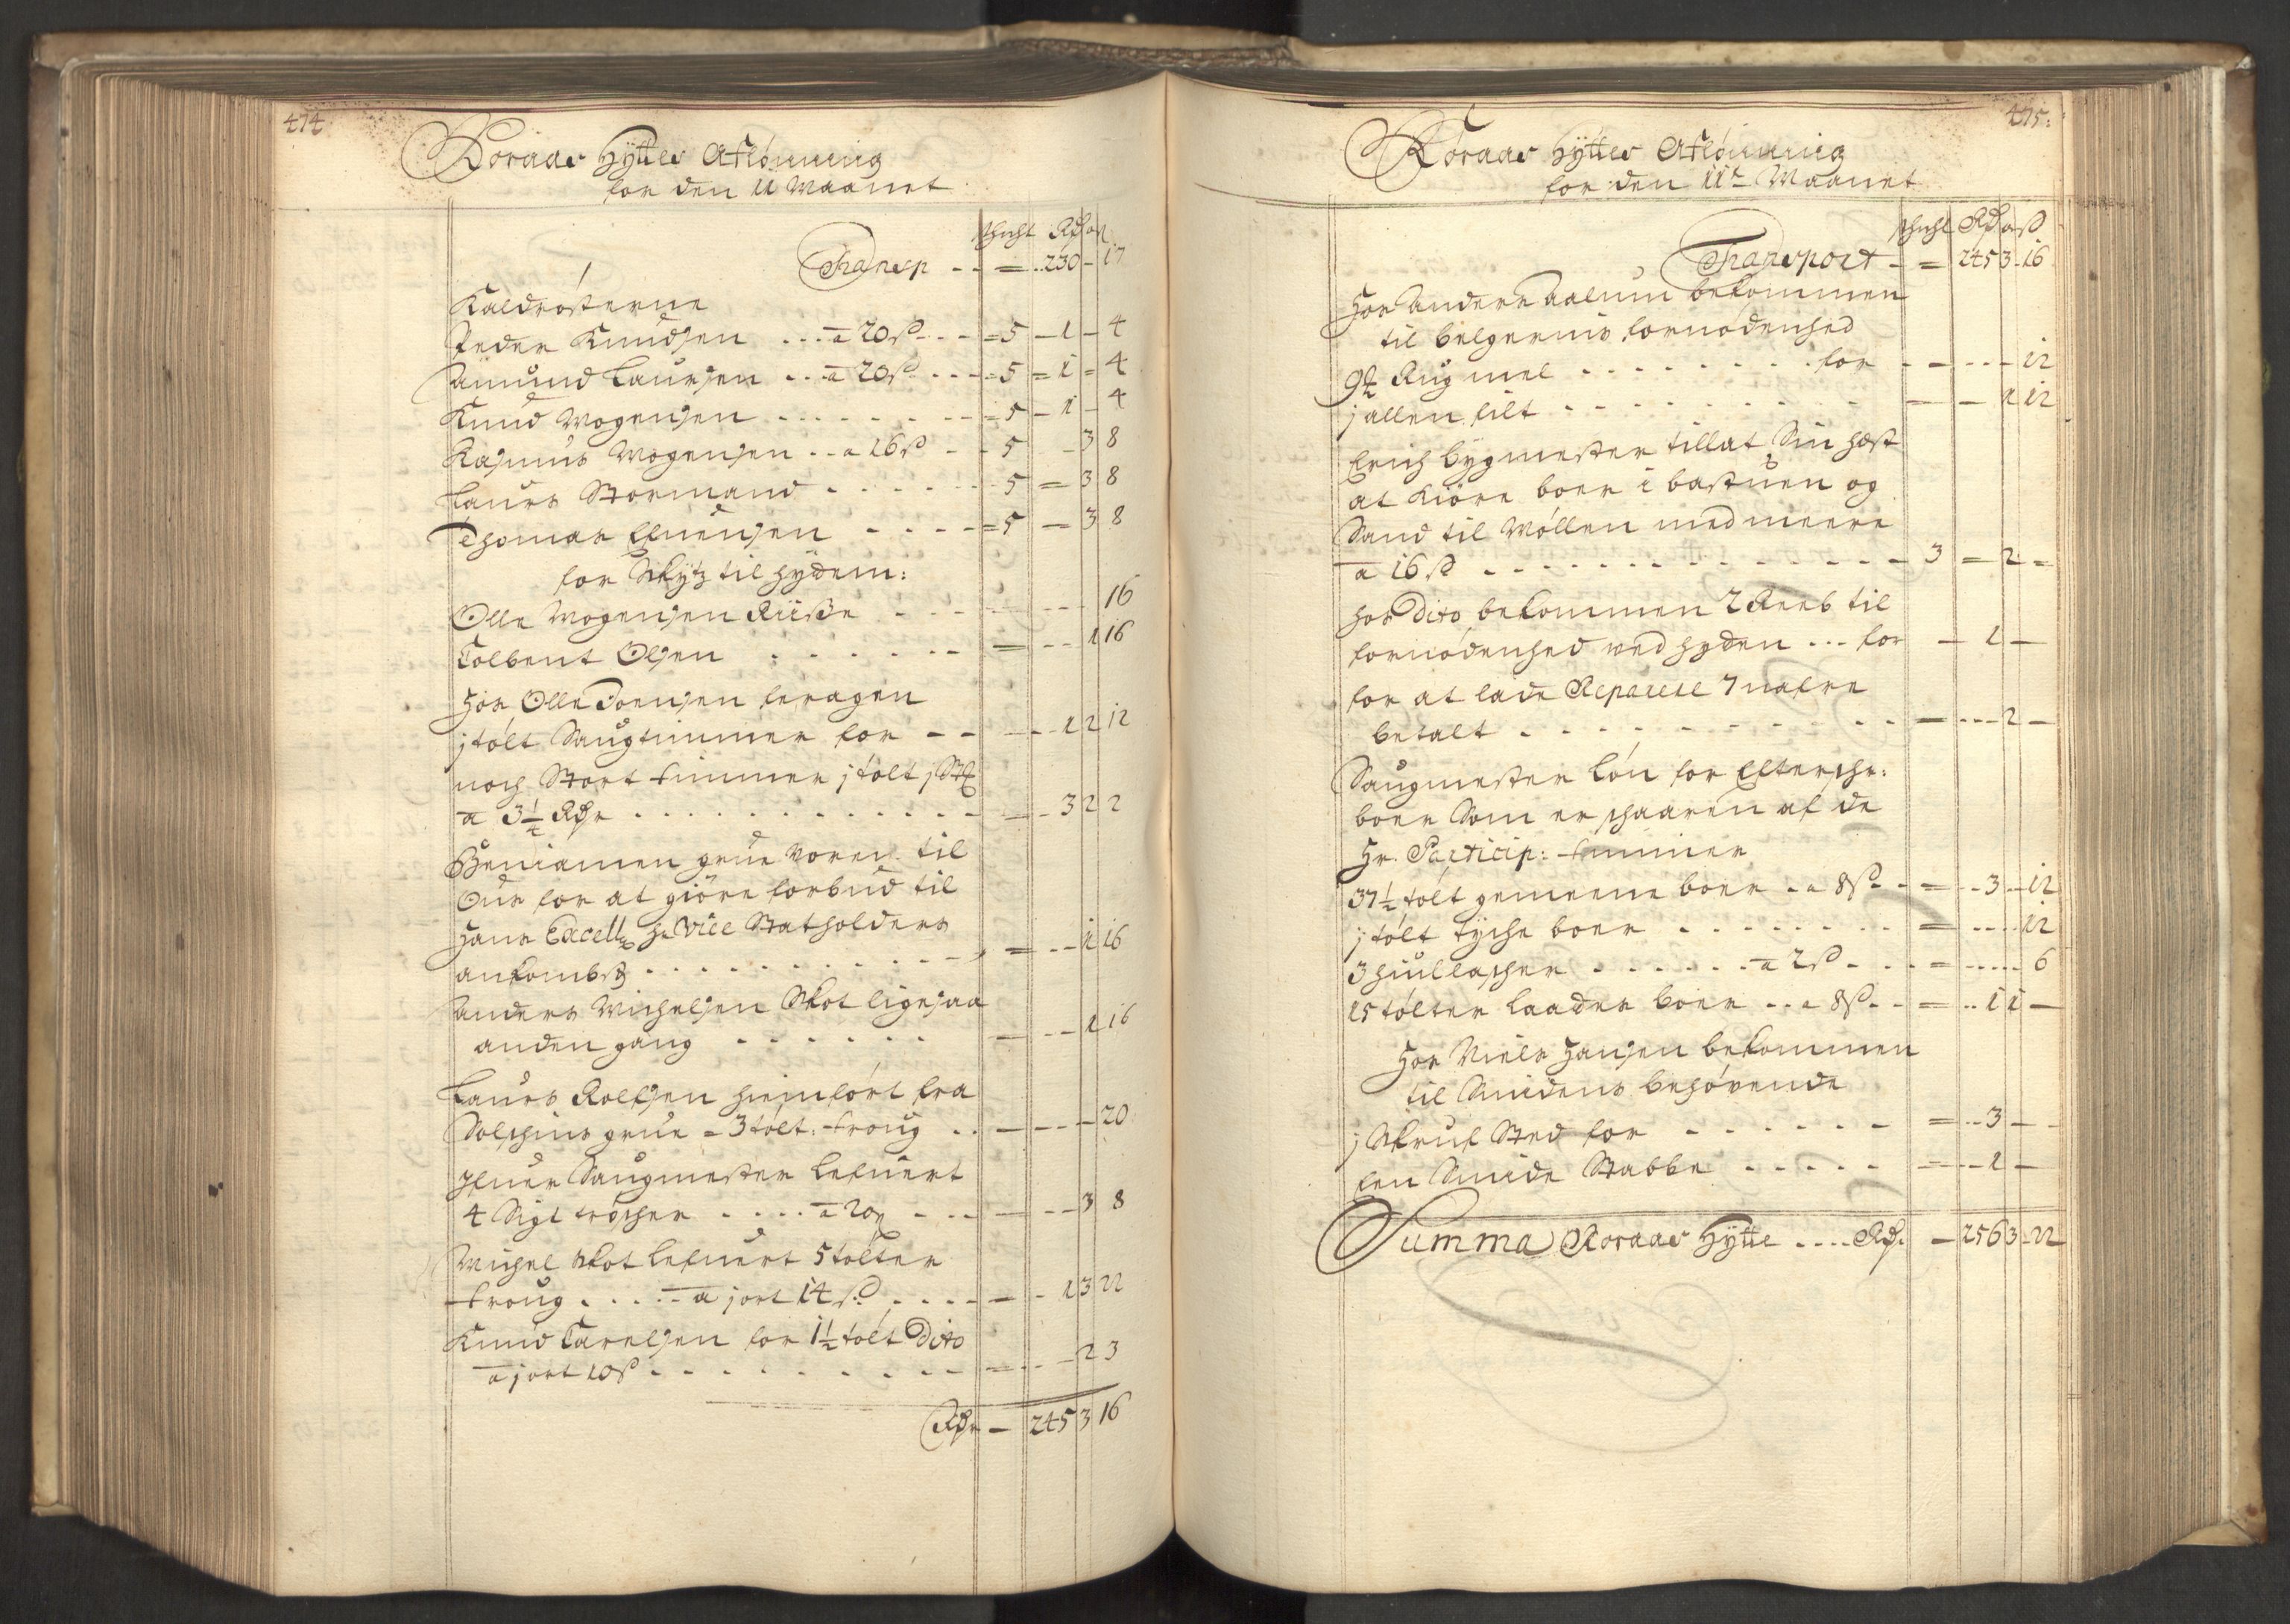 474
Röraas Hÿttes Aflönning
for den 11 Maanet
schicht Rdr ort ß
Transp - - = .. 230 - 17
Kaldrösterne
Peder Knudsen ... a 20 ß - - - = 5 - 1 - 4
Amund Laursen .. a 20 ß - - - = 5 = 1 = 4
Knud Mogensen - - - - = 5 - 1 - 4
Rasmus Mogensen .. a 16 ß - - 5 - 3 8
Laurs Stormand - - - - 5 = 3 8
Thomas Efuensen - - - - = 5 = 3 8
for Skÿtz til hÿdem:
Olle Mogensen Riisze - - - - 16
Tolbent Olsen - - - - = - - 1 16
Hos Olle Joensen
j tólt Saugtimmer for - - - - 1 2 12
noch Stort timmer j tolt j St
a 3¼ Rdr - - - - = - 3 2 2
Beniamen grue Voren til
Ous for at giöre forbud til
Hans Excell Hr Vice Statholders
ankombst - - - - = - - 1 16
Anders Michelsen Skot ligesaa
anden gang - - - - = - - 1 16
Laurs Rolfsen hiemfört fra
Solschins grue = 3 tölt: troug .. = - - - 20
Ifuer Saugmester lefuert
4 Sigt tröscher - - - - a 20 ß - - - - 3 8
Michel Skot lefuert 5 tolter
troug .... a j ort 14 ß - - - = - 1 3 22
Knud Carelsen for 1½ tolt Dito
a j ort 10 ß - - - - = - - 2 3
Rdr = 245 3 16
475:
Röraas Hÿttes Aflönning
for den 11te Maanet
schicht Rdr ort ß
Transport - = 245 3 - 16
Hos Anders Aalum bekommen
til belgernis fornödenhed
9 ℔ Rug mel - - - - for - - - - 12
j allen filt - - - - = - 1 12
Erich bÿgmester tillat Sin hest
at kiöre boer i bastuen og
Sand til Möllen med meere
a 16 ß - - - - 3 = 2 -
hos Dito bekommen 2 Reeb til
fornödenhed ved hÿden ... for - 1 -
for at lade Reparere 7 nafre
betalt - - - - = - - 2 -
Saugmester lön for Efterschr:
boer Som er schaaren af de
Hr. Particip: timmer
37½ tolt gemeene boer .. a 8 ß - - = - - 3 - 12
j tólt tÿche boer - - - - = - - - 12
3 hiullascher - - - - a 2 ß - - - = - - - 6
15 tölter laader boer .. a 8 ß - - = .. 1 1 -
Hos Niels Hansen bekommen
til Smidens behövende
j Skruf Sted for - - - - = - - 3 - -
Een Smide Stabbe - - - - = - - 1 -
Summa Röraas Hÿtte .... Rdr. - 256 3 - 22